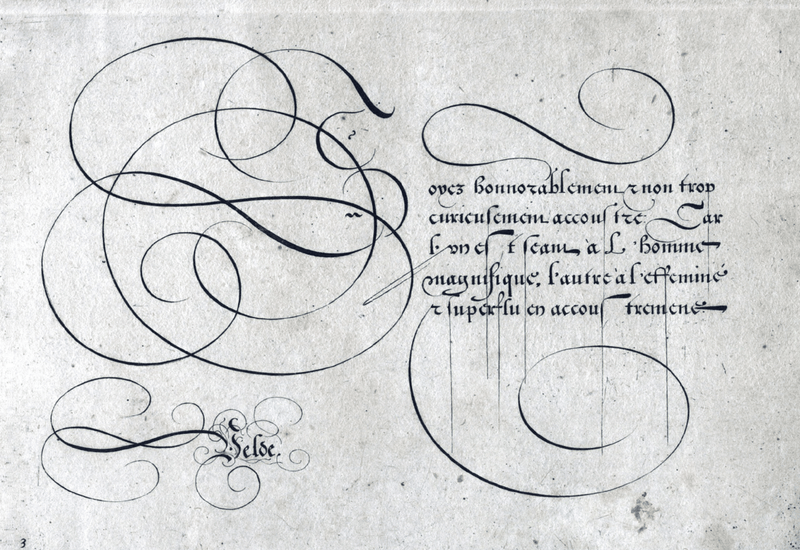 Soyez honnorablement & non trop
curieusement accoustré. Car
l'vn est seant à L'homme
magnifique, l'autre à l'effeminé
& superflu en accoustremens
Velde.
3